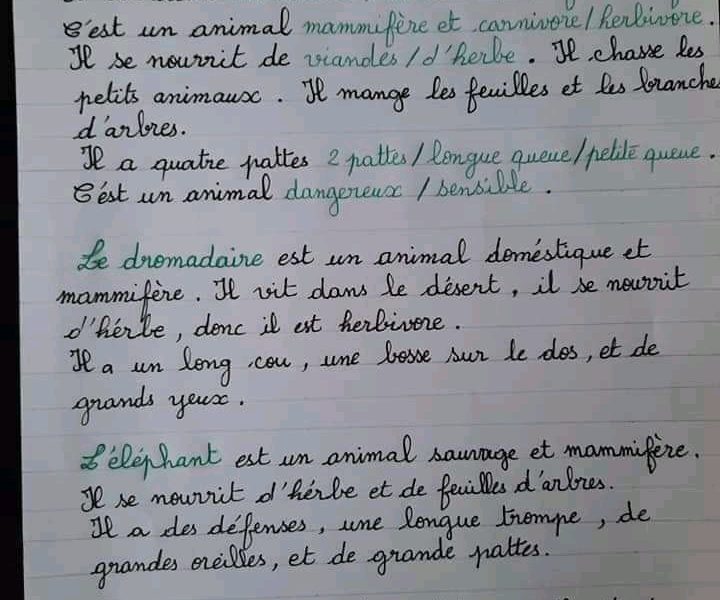 C'est un animal mammifère et carnivore/herbivore.
Il se nourrit de viandes/d'herbe. Il chasse les
petits animaux. Il mange les feuilles et les branches
d'arbres.
Il a quatre pattes 2 pattes/longue queue/petite queue.
C'ést un animal dangereux/sensible.
Le dromadaire est un animal doméstique et
mammifère. Il vit dans le désert, il se nourrit
d'hérbe, donc il est herbivore.
Il a un long cou, une bosse sur le dos, et de
grands yeux.
L'éléphant est un animal sauvage et mammifère.
Il se nourrit d'hérbe et de feuilles d'arbres.
Il a des défenses, une longue trompe, de
grandes oreilles, et de grande pattes.